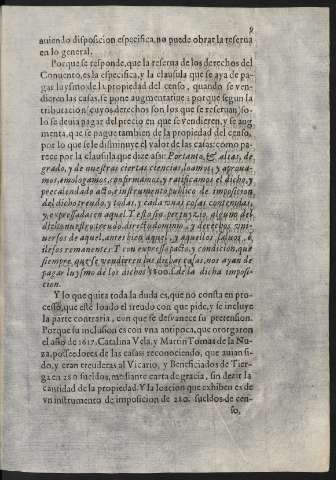 auiendo disposicion especifica, no puede obrar la reserua
en lo general.
Porque se responde, que la reserua de los derechos del
Conuento, es la especifica, y la clausula que se aya de pa-
gar luysmo de la propiedad del censo, quando se ven-
dieren las casas, se pone augmentatiue: porque segun la
tributacion (cuyos derechos son los que se reseruan) so-
lo se deuia pagar del precio en que se vendieren, y se aug-
menta, que se pague tambien de la propiedad del censo,
por lo que se le disminuye el valor de las casas: como pa-
rece por la clausula que dize assi: Portanto, & alias, de
grado, y de nuestras ciertas ciencias, loamos, y aproua-
mos, emologamos, confirmamos, y ratificamos el dicho, y
precalendado acto, e instrumento publico de imposicion
del dicho treudo, y todas, y cada vnas cosas contenidas,
y expressadas en aquel. Y esto sin perjuyzio, alguno del
dicho nuestro treudo, directo dominio, y derechos vni-
uersos de aquel, ante bien aquel, y aquellos saluos, è
ilesos remanente: Y con expresso pacto, y condicion, que
siempre, que se vendieren las dichas casas, nos ayan de
pagar luysmo de los dichos 5300.s. de la dicha imposi-
cion.
Y lo que quita toda la duda es, que no consta en pro-
cesso, que esté loado el treudo con que pide, y se incluye
la parte contraria, con que se desvanece su pretension.
Porque su inclusion es con vna antipoca, que otorgaron
el año de 1617. Catalina Vela, y Martin Tomas de la Nu-
za, posseedores de las casas reconociendo, que auian si-
do, y eran treuderas al Vicario, y Beneficiados de Tier-
ga en 280 sueldos, mediante carta de gracia, sin dezir la
cantidad de la propiedad. Y la loacion que exhiben es de
vn instrumento de imposicion de 280. sueldos de cen-
so,